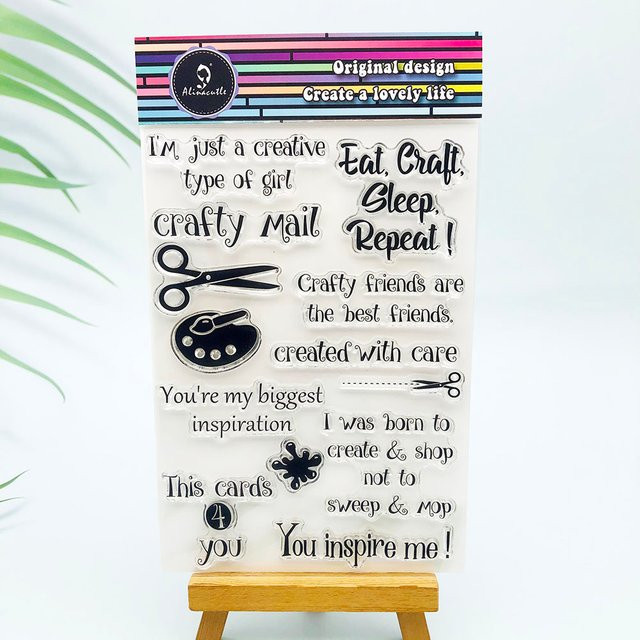 Alinacutle
Original design
Create a lovely life
I'm just a creative
type of girl
Eat, Craft,
Sleep,
Repeat!
crafty mail
Crafty friends are
the best friends.
created with care
You're my biggest
inspiration
I was born to
create & shop
not to
sweep & mop
This cards
4
you
You inspire me!